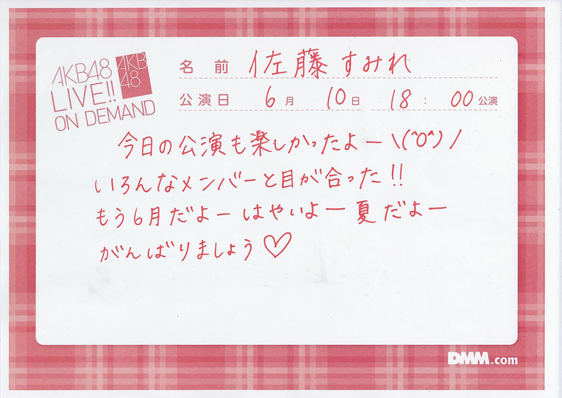 AKB48
LIVE!!
ON DEMAND
AKB
48
名 前 佐藤すみれ
公演日 6月 10日 18:00公演
今日の公演も楽しかったよー\(^O^)/
いろんなメンバーと目が合った!!
もう6月だよーはやいよー夏だよー
がんばりましょう♡
DMM.com